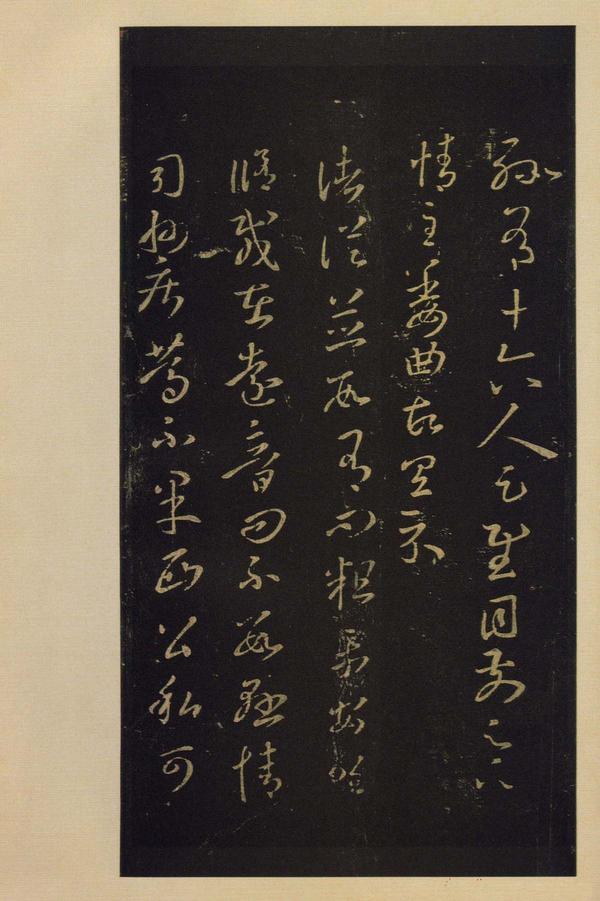 孫有十六人足慰目前足下
情至委曲故具示
諸從並數有問粗平安唯
脩載在遠音問不數懸情
司州疾篤不果西公私可